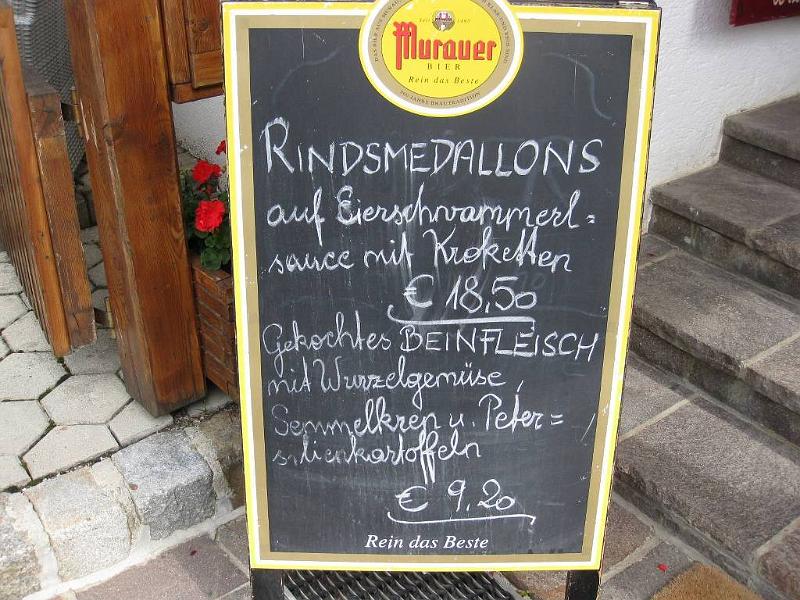 Murauer
BIER
Rein das Beste
RINDSMEDALLONS
auf Eierschwammerl=
sauce mit Kroketten
€ 18,50
Gekochtes BEINFLEISCH
mit Wurzelgemüse,
Semmelkren u. Peter=
silienkartoffeln
€ 9,20
Rein das Beste